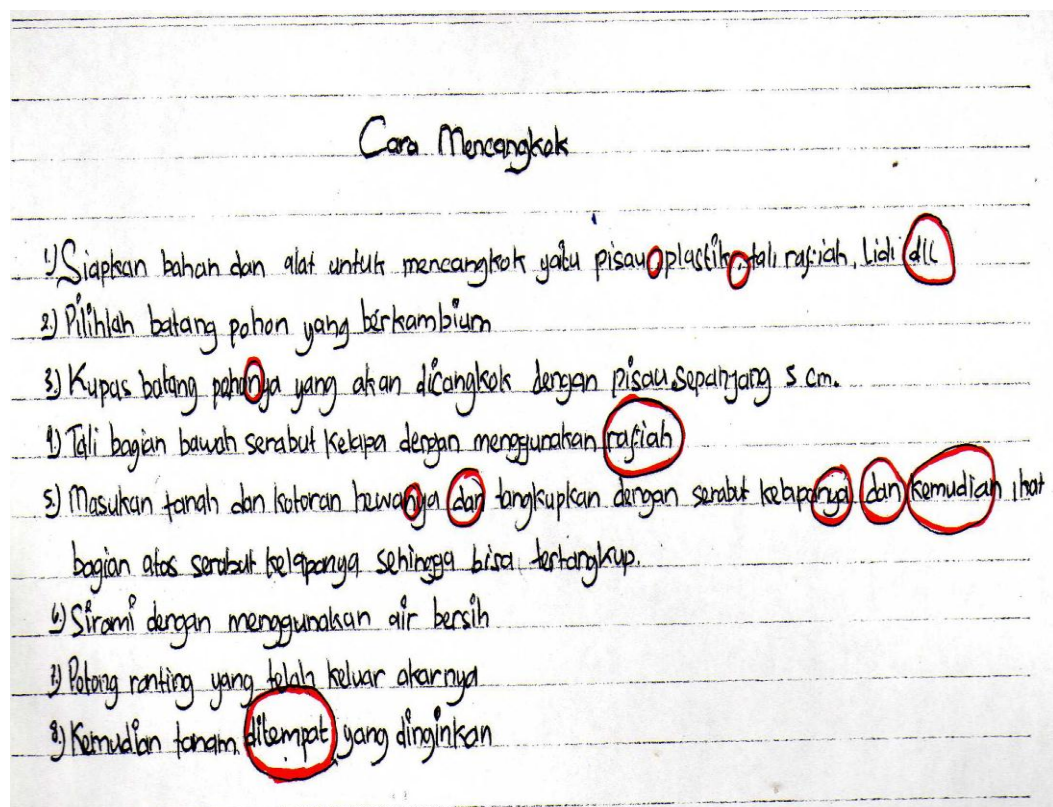 Cara Mencangkok
1.) Siapkan bahan dan alat untuk mencangkok yaitu pisau, plastik, tali rafiah, Lidi dll
2.) Pilihlah batang pohon yang berkambium
3.) Kupas batang pohonya yang akan dicangkok dengan pisau sepanjang 5 cm.
4.) Tali bagian bawah serabut kelapa dengan menggunakan rafiah
5.) Masukan tanah dan kotoran hewanya dan tangkupkan dengan serabut kelapanya dan kemudian ikat
bagian atas serabut kelapanya sehingga bisa tertangkup.
6.) Sirami dengan menggunakan air bersih
7.) Potong ranting yang telah keluar akarnya
8.) Kemudian tanam ditempat yang dinginkan